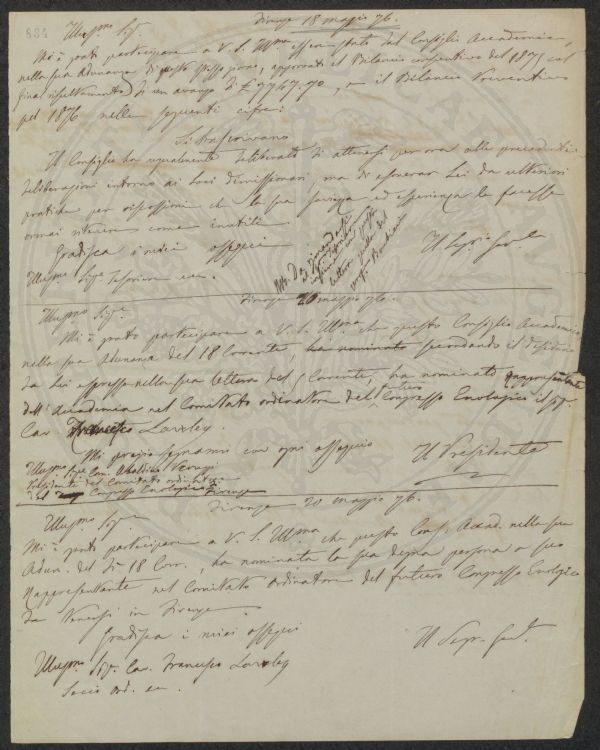 884
Firenze 18 maggio 76.
Illusmo Sigr.
Mi è grato partecipare a V. S. Illma essere stato dal Consiglio Accademico,
nella sua Adunanza di questo stesso giorno, approvati il Bilancio consuntivo del 1875 col
final resultamento di un avanzo di £ 9767.70, e il Bilancio Preventivo
pel 1876 nelle seguenti cifre:
Si trascrivano
Il Consiglio ha ugualmente deliberato di attenersi per ora alle precedenti
deliberazioni intorno ai Soci dimissionari, ma di esonerar Lei da ulteriori
pratiche per riscossioni che la sua saviezza ed esperienza le facesse
ormai ritenere come inutili.
Gradisca i miei ossequi
Il Segr. Gen.le
Illusmo Sigr Tesoriere ec.
lettera quella del
Firenze 20 maggio 76.
Illusmo Sigre
Mi è grato partecipare a V. S. Illma che questo Consiglio Accademico
nella sua Adunanza del 18 Corrente, ha nominato secondando il desiderio
da Lei espresso nella sua lettera del 5 Corrente, ha nominato rappresentante
dell' Accademia nel Comitato ordinatore del futuro Congresso Enologico il Sigr.
Cav. Francesco Lawley.
Mi pregio segnarmi con ogni ossequio
Il Presidente
Illusmo Sigre Cav. Ubaldino Peruzzi
Presidente del Comitato ordinatore
del Congresso Enologico di Firenze
Firenze 20 maggio 76.
Illusmo Sigre
Mi è grato partecipare a V. S. Illma che questo Cons. Accad. nella sua
Adun. del dì 18 Corr., ha nominata la sua degna persona a suo
Rappresentante nel Comitato ordinatore del futuro Congresso Enologico
da tenersi in Firenze.
Gradisca i miei ossequi
Il Segr. Genle
Illusmo Sigr. Cav. Francesco Lawley
Socio ord. ec.